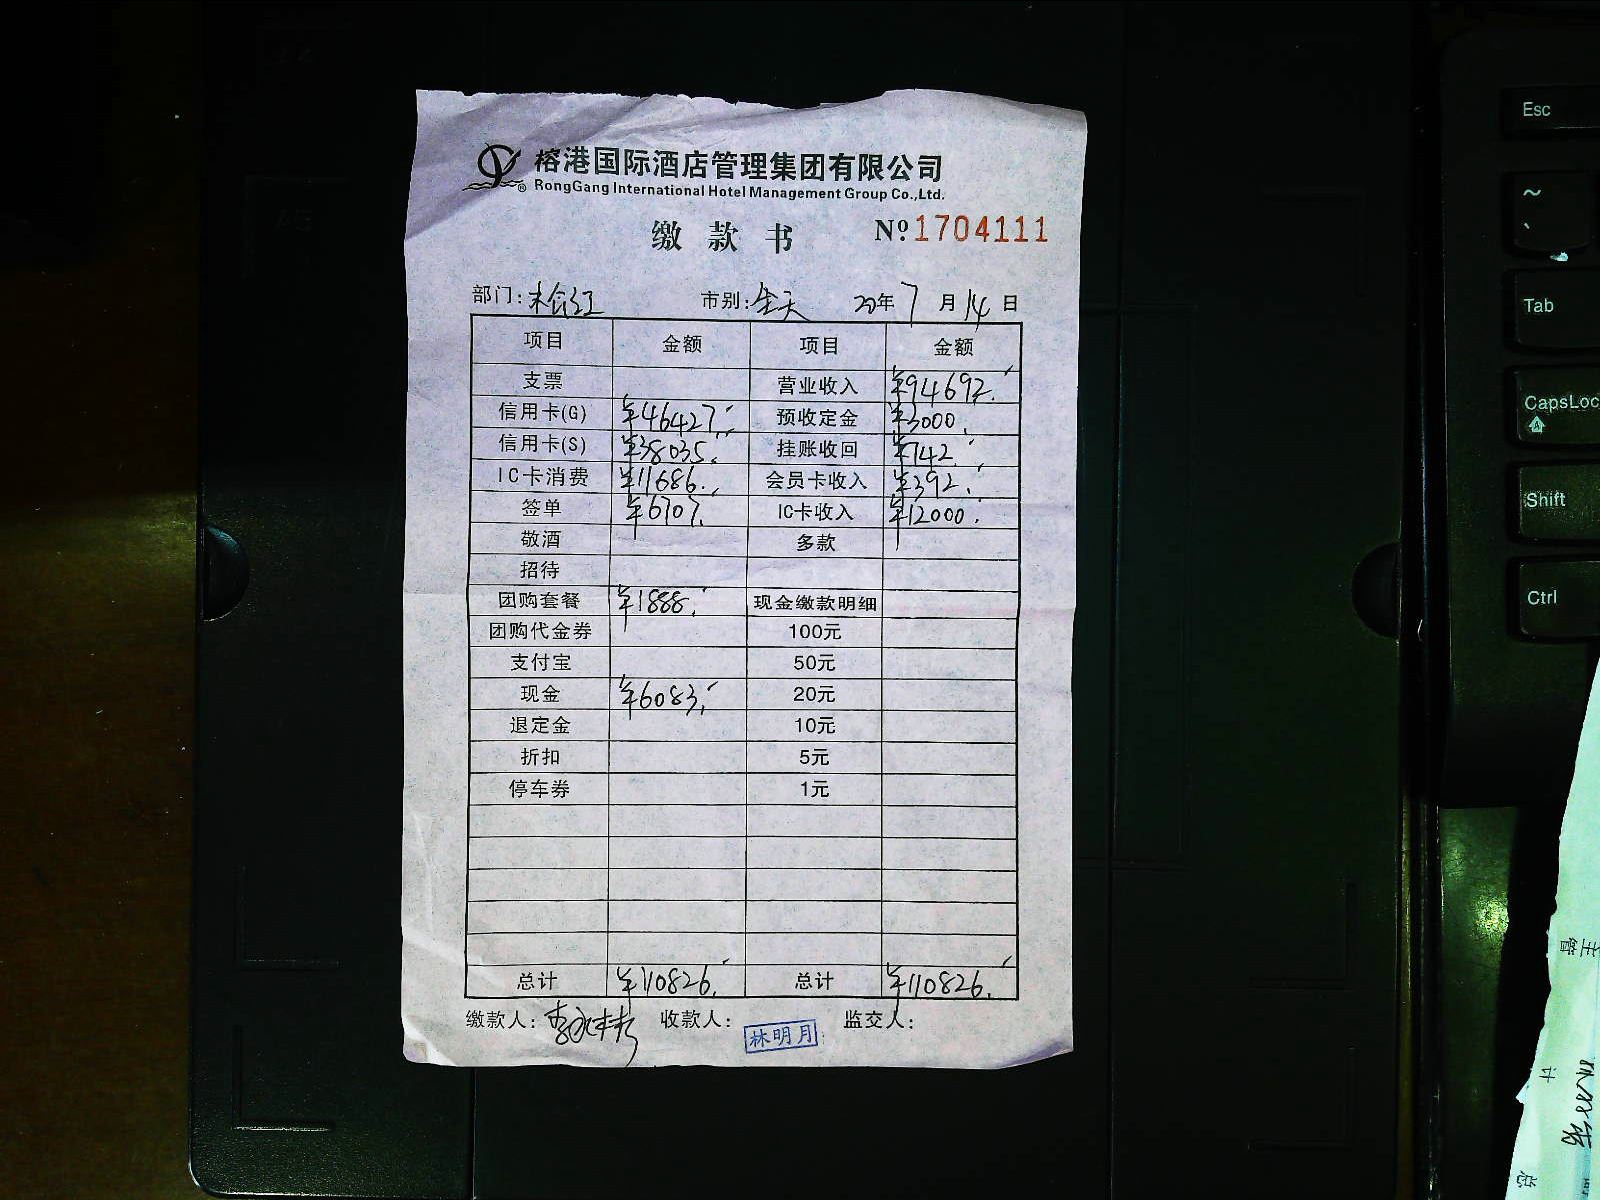 榕港国际酒店管理集团有限公司
RongGang International Hotel Management Group Co.,Ltd.
缴款书 Nº 1704111
部门: 市别:全天 20年7月14日
项目 金额 项目 金额
支票 营业收入 ¥94692.
信用卡(G) ¥46427. 预收定金 ¥3000.
信用卡(S) ¥38035. 挂账收回 ¥742.
IC卡消费 ¥11686. 会员卡收入 ¥392.
签单 ¥6707. IC卡收入 ¥12000.
敬酒 多款
招待
团购套餐 ¥1888. 现金缴款明细
团购代金券 100元
支付宝 50元
现金 ¥6083. 20元
退定金 10元
折扣 5元
停车券 1元
总计 ¥110826. 总计 ¥110826.
缴款人: 收款人: 林明月 监交人:
Esc
~
Tab
CapsLoc
A
Shift
Ctrl
主管
计
总